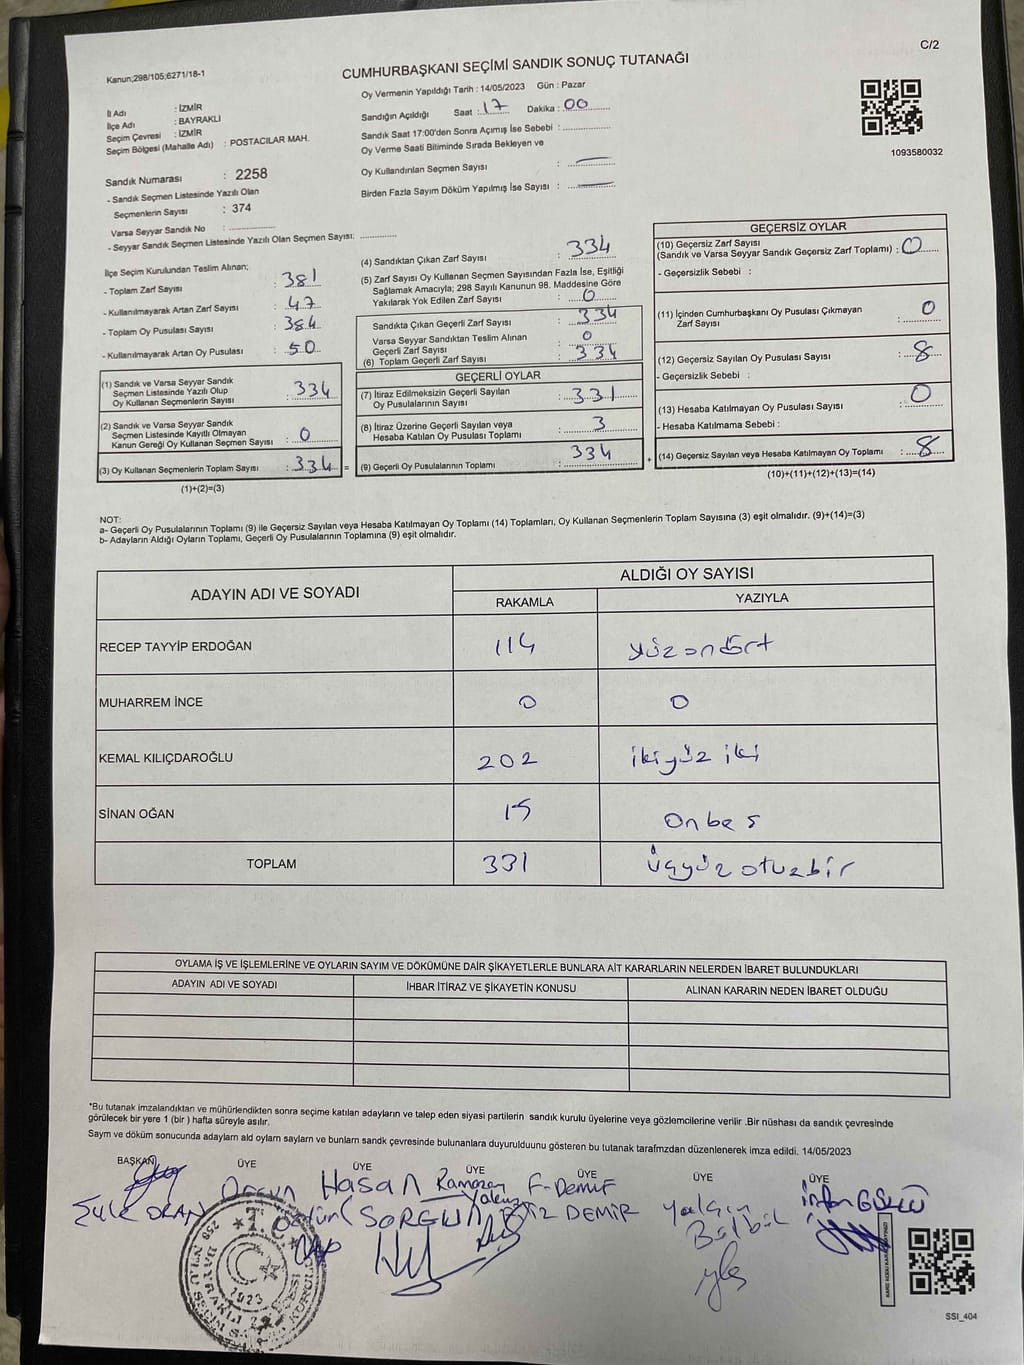 C/2
Kanun;298/105;6271/18-1
CUMHURBAŞKANI SEÇİMİ SANDIK SONUÇ TUTANAĞI
İl Adı : İZMİR
İlçe Adı : BAYRAKLI
Seçim Çevresi : İZMİR
Seçim Bölgesi (Mahalle Adı) : POSTACILAR MAH.
Oy Vermenin Yapıldığı Tarih : 14/05/2023 Gün : Pazar
Sandığın Açıldığı Saat : 17 Dakika : 00
Sandık Saat 17:00'den Sonra Açımış İse Sebebi :
Oy Verme Saati Bitiminde Sırada Bekleyen ve
Oy Kullandırılan Seçmen Sayısı : —
Birden Fazla Sayım Döküm Yapılmış İse Sayısı : —
1093580032
Sandık Numarası : 2258
- Sandık Seçmen Listesinde Yazılı Olan
Seçmenlerin Sayısı : 374
Varsa Seyyar Sandık No :
- Seyyar Sandık Seçmen Listesinde Yazılı Olan Seçmen Sayısı:
İlçe Seçim Kurulundan Teslim Alınan;
- Toplam Zarf Sayısı : 381
- Kullanılmayarak Artan Zarf Sayısı : 47
- Toplam Oy Pusulası Sayısı : 384
- Kullanılmayarak Artan Oy Pusulası : 50
(1) Sandık ve Varsa Seyyar Sandık
Seçmen Listesinde Yazılı Olup
Oy Kullanan Seçmenlerin Sayısı : 334
(2) Sandık ve Varsa Seyyar Sandık
Seçmen Listesinde Kayıtlı Olmayan
Kanun Gereği Oy Kullanan Seçmen Sayısı : 0
(3) Oy Kullanan Seçmenlerin Toplam Sayısı : 334 =
(1)+(2)=(3)
(4) Sandıktan Çıkan Zarf Sayısı : 334
(5) Zarf Sayısı Oy Kullanan Seçmen Sayısından Fazla İse, Eşitliği
Sağlamak Amacıyla; 298 Sayılı Kanunun 98. Maddesine Göre
Yakılarak Yok Edilen Zarf Sayısı : 0
Sandıkta Çıkan Geçerli Zarf Sayısı : 334
Varsa Seyyar Sandıktan Teslim Alınan
Geçerli Zarf Sayısı : 0
(6) Toplam Geçerli Zarf Sayısı : 334
GEÇERLİ OYLAR
(7) İtiraz Edilmeksizin Geçerli Sayılan
Oy Pusulalarının Sayısı : 331
(8) İtiraz Üzerine Geçerli Sayılan veya
Hesaba Katılan Oy Pusulası Toplamı : 3
(9) Geçerli Oy Pusulalarının Toplamı : 334 +
GEÇERSİZ OYLAR
(10) Geçersiz Zarf Sayısı
(Sandık ve Varsa Seyyar Sandık Geçersiz Zarf Toplamı) : 0
- Geçersizlik Sebebi :
(11) İçinden Cumhurbaşkanı Oy Pusulası Çıkmayan
Zarf Sayısı : 0
(12) Geçersiz Sayılan Oy Pusulası Sayısı : 8
- Geçersizlik Sebebi :
(13) Hesaba Katılmayan Oy Pusulası Sayısı : 0
- Hesaba Katılmama Sebebi :
(14) Geçersiz Sayılan veya Hesaba Katılmayan Oy Toplamı : 8
(10)+(11)+(12)+(13)=(14)
NOT:
a- Geçerli Oy Pusulalarının Toplamı (9) ile Geçersiz Sayılan veya Hesaba Katılmayan Oy Toplamı (14) Toplamları, Oy Kullanan Seçmenlerin Toplam Sayısına (3) eşit olmalıdır. (9)+(14)=(3)
b- Adayların Aldığı Oyların Toplamı, Geçerli Oy Pusulalarının Toplamına (9) eşit olmalıdır.
ADAYIN ADI VE SOYADI ALDIĞI OY SAYISI
RAKAMLA YAZIYLA
RECEP TAYYİP ERDOĞAN 114 yüz ondört
MUHARREM İNCE 0 0
KEMAL KILIÇDAROĞLU 202 ikiyüz iki
SİNAN OĞAN 15 onbeş
TOPLAM 331 üçyüz otuzbir
OYLAMA İŞ VE İŞLEMLERİNE VE OYLARIN SAYIM VE DÖKÜMÜNE DAİR ŞİKAYETLERLE BUNLARA AİT KARARLARIN NELERDEN İBARET BULUNDUKLARI
ADAYIN ADI VE SOYADI İHBAR İTİRAZ VE ŞİKAYETİN KONUSU ALINAN KARARIN NEDEN İBARET OLDUĞU
*Bu tutanak imzalandıktan ve mühürlendikten sonra seçime katılan adayların ve talep eden siyasi partilerin sandık kurulu üyelerine veya gözlemcilerine verilir .Bir nüshası da sandık çevresinde
görülecek bir yere 1 (bir ) hafta süreyle asılır.
Saym ve döküm sonucunda adaylarn ald oylarn saylarn ve bunlarn sandk çevresinde bulunanlara duyurulduunu gösteren bu tutanak tarafmzdan düzenlenerek imza edildi. 14/05/2023
BAŞKAN ÜYE ÜYE ÜYE ÜYE ÜYE ÜYE
Hasan Ramazan F-Demir Yalçın
ORAN SORGUN DEMİR Bülbül
2023
SSI_404